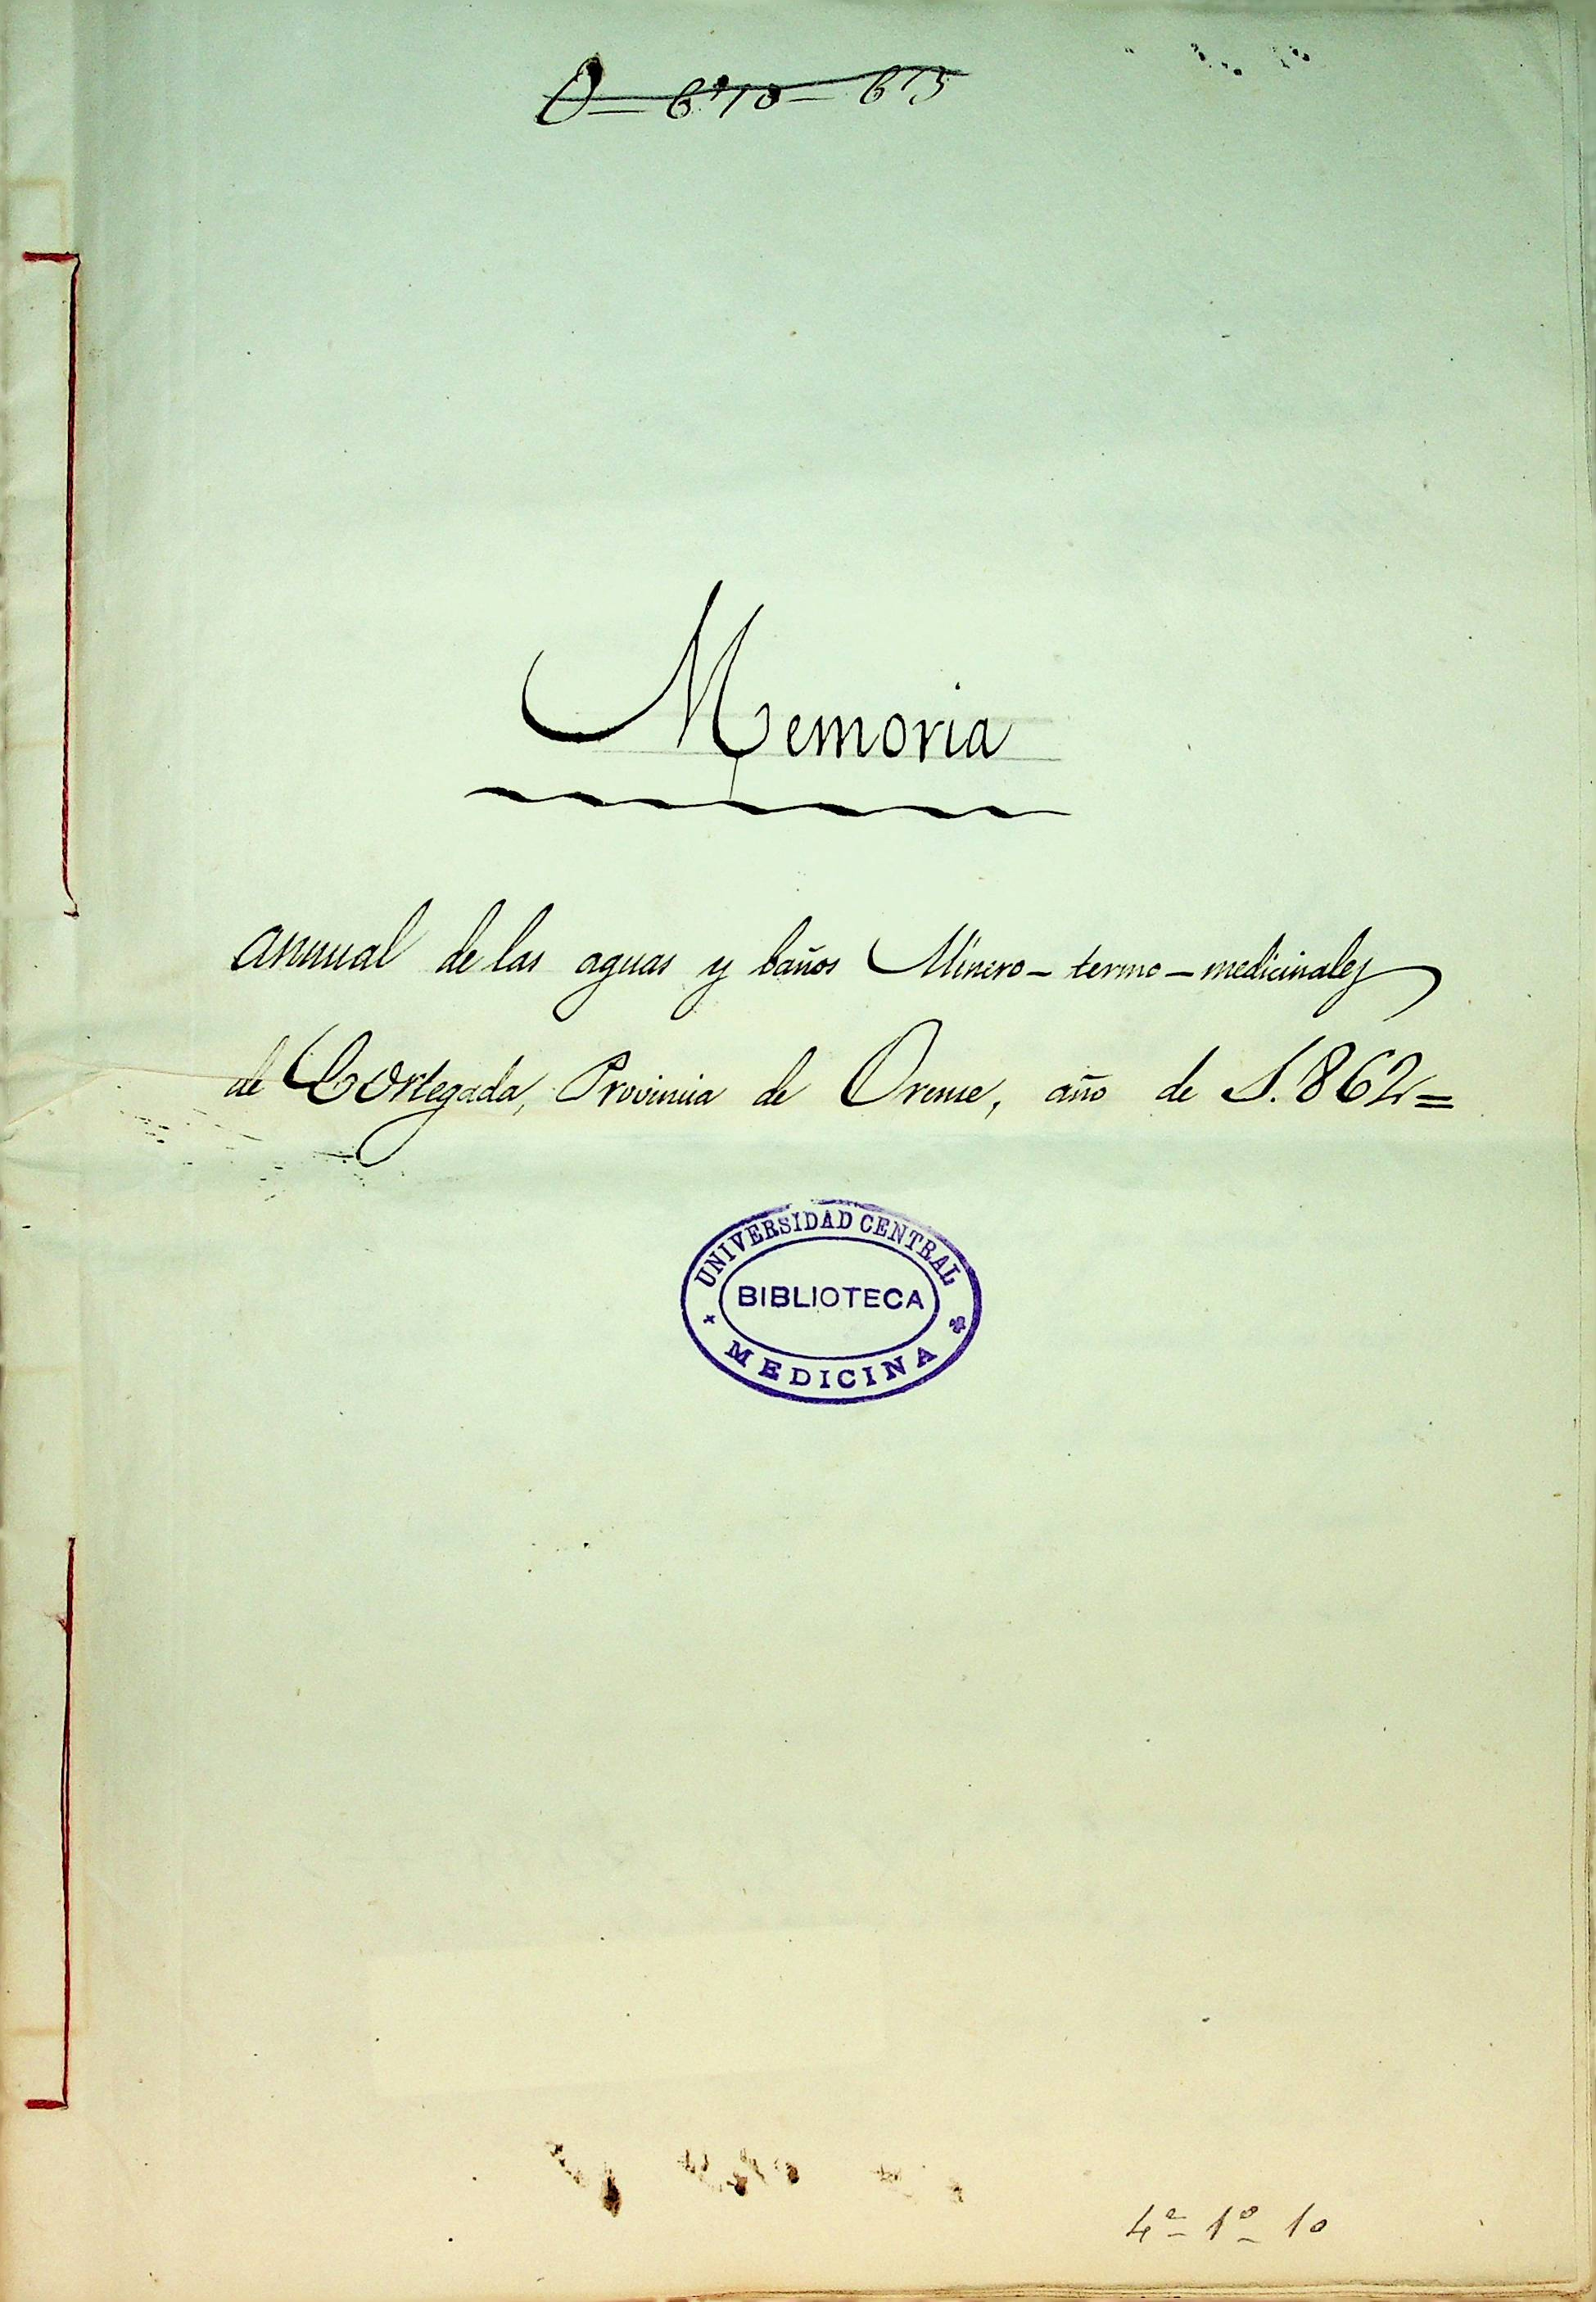 Memoria
annual de las aguas y baños Minero-termo-medicinales
de Cortegada, Provincia de Orense, año de 1.862=
UNIVERSIDAD CENTRAL
BIBLIOTECA
MEDICINA
4ª 1º 10